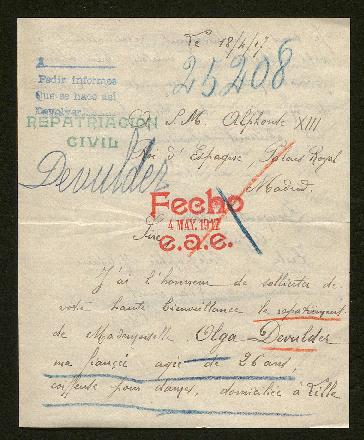 18/4/17
25208
A
Pedir informes
Que se hace así
Devolver
REPATRIACION
CIVIL
S. M. Alphonse XIII
Roi d'Espagne, Palais Royal
Madrid.
Devulder
Fecho
4 MAY. 1917
e.a.e.
Sire
J'ai l'honneur de solliciter de
votre haute bienveillance le rapatriement
de Mademoiselle Olga Devulder
ma fiancée agée de 26 ans,
pour dames, domiciliée à Lille